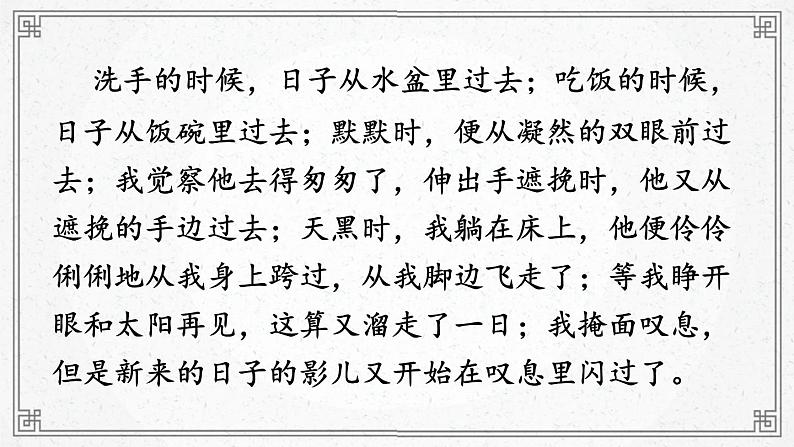 洗手的时候，日子从水盆里过去；吃饭的时候，
日子从饭碗里过去；默默时，便从凝然的双眼前过
去；我觉察他去得匆匆了，伸出手遮挽时，他又从
遮挽的手边过去；天黑时，我躺在床上，他便伶伶
俐俐地从我身上跨过，从我脚边飞走了；等我睁开
眼和太阳再见，这算又溜走了一日；我掩面叹息，
但是新来的日子的影儿又开始在叹息里闪过了。